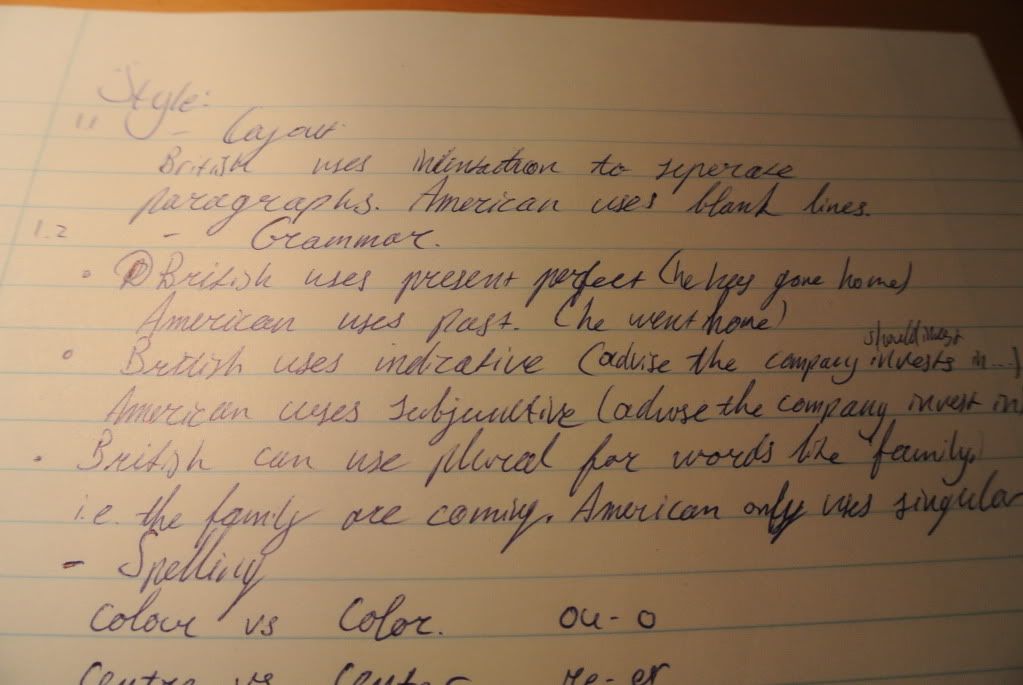 Style:
1.1 - Layout
British uses indentation to seperate
paragraphs. American uses blank lines.
1.2 - Grammar.
• British uses present perfect (he has gone home)
American uses past. (he went home)
should invest
• British uses indicative (advise the company invests in ...)
American uses subjunctive (advise the company invest in
• British can use plural for words like family.
i.e. the family are coming. American only uses singular
- Spelling
Colour vs Color. ou-o
Centre vs Center re-er